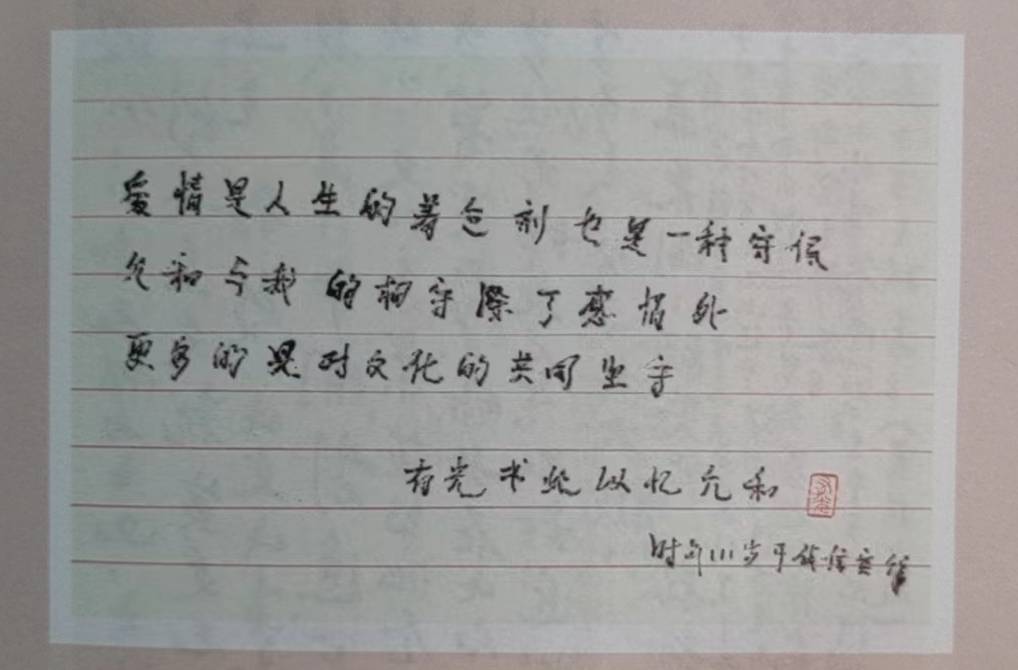 爱情是人生的着合剂也是一种守候
允和与我的相守除了感情外
更多的是对文化的共同坚守
有光书此以忆允和
有光
时年111岁于